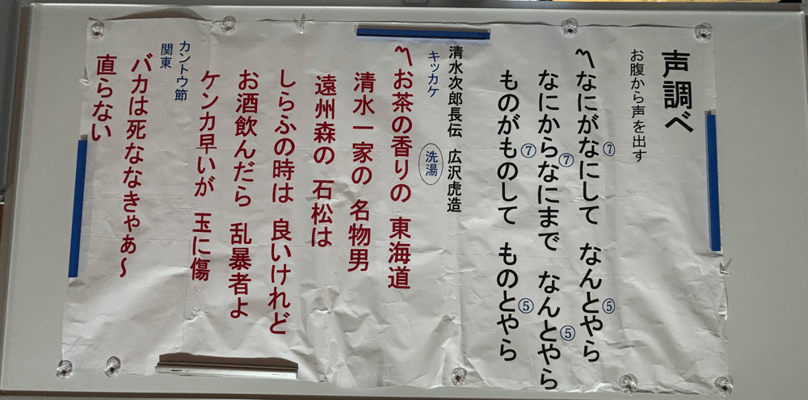 声調べ
お腹から声を出す
〽なにがなにして なんとやら
⑦ ⑤
なにからなにまで なんとやら
⑦ ⑤
ものがものして ものとやら
⑦ ⑤
清水次郎長伝 広沢虎造
キッカケ 洗湯
〽お茶の香りの 東海道
清水一家の 名物男
遠州森の 石松は
しらふの時は 良いけれど
お酒飲んだら 乱暴者よ
ケンカ早いが 玉に傷
カントウ節
関東
バカは死ななきゃぁ～
直らない